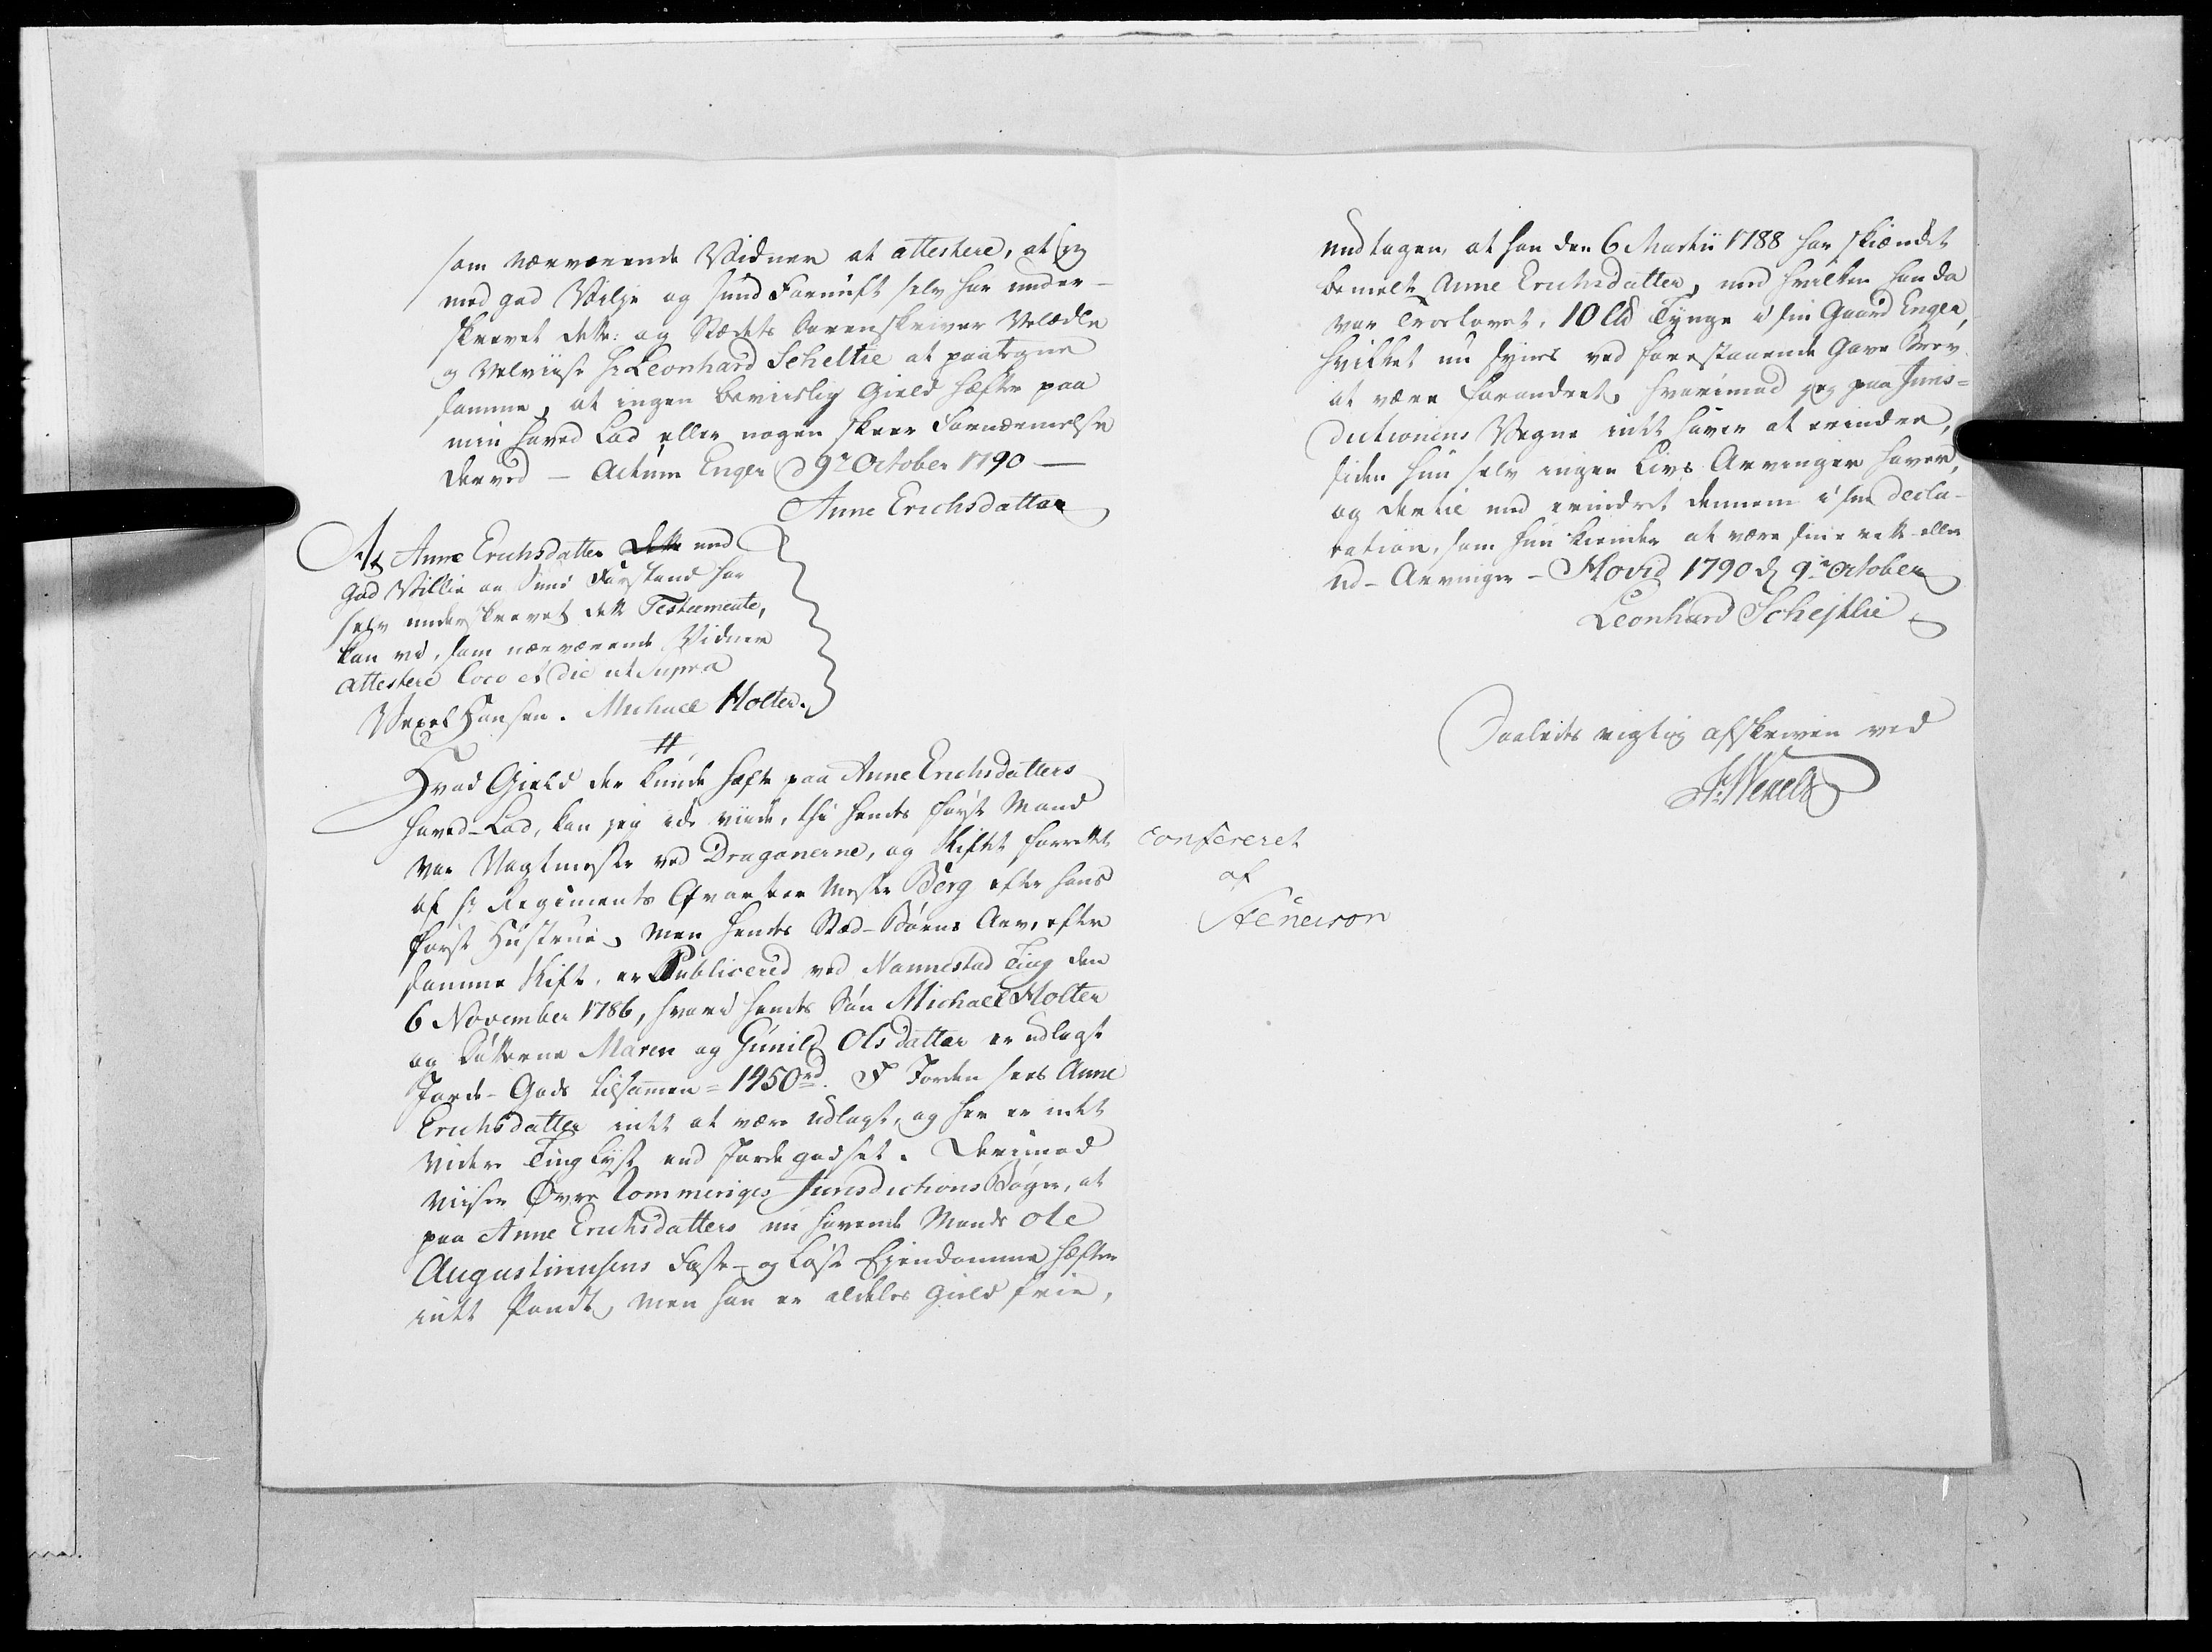 som nærværende Vidner at attestere, at jeg
med god Vilje og sund Fornuft selv har under-
skrevet dette: og Stædets Sorenskriver Velædle
og Velviise Hr Leonhard Scheltie at paategne
samme, at ingen beviislig Gield hæfter paa
min hoved Lod eller nogen skeer Fornærmelse
derved — Actum Enger d 9de October 1790 —
Anne Erichsdatter
At Anne Erichsdatter dette med
god Villie og Sund Forstand har
selv underskrevet dette Testemente,
kan vi, som nærværende Vidner
attestere Loco et die ut supra
Wexel Hansen. Michael Holter.
#
Hvad Gield der kunde hæfte paa Anne Erichsdatters
hoved-Lod, kan jeg ei viide, thi hendes først Mand
var Vagtmester ved Dragonerne, og Skiftet forrettet
af Hr Regiments Qvarteer Mester Berg efter hans
først Hustrue, men hendes Sted-Børns Arv, efter
samme Skifte, er Publicered ved Nannestad Ting den
6 November 1786, hvori hendes Søn Michael Holter
og Døttrene Maren og Gunild Olsdatter er udlagt
Jorde-Gods tilsammen = 1450 rd. I Jorden sees Anne
Erichsdatter intet at være udlagt, og her er intet
videre Ting lyst end Jordegodset. Derimod
viiser Øvre Rommeriges Jurisdictions Bøger, at
paa Anne Erichsdatters nu havende Mands Ole
Augustinusens Faste- og Løse Ejendomme hæfter
intet Pandt, men han er aldeles Gield frie,
undtagen, at han den 6 Martii 1788 har skiændet
bemelte Anne Erichsdatter, med hvilken han da
var Troelovet, 10 Tynge i sin Gaard Enger,
hvilket nu synes ved forestaaende Gave Brev
at være forandret, hvorimod jeg paa Juris=
dictionens Vegne intet haver at erindre,
siden hun selv ingen Livs Arvinger haver,
og dertil med erindret dennem i sin Decla-
ration, som hun kiender at være sine rette eller
ud-Arvinger — Hovid 1790 d 9de October
Leonhard Schejtlie
Saaledes rigtig afskreven ved
Wexels
confereret
af
Stenerson